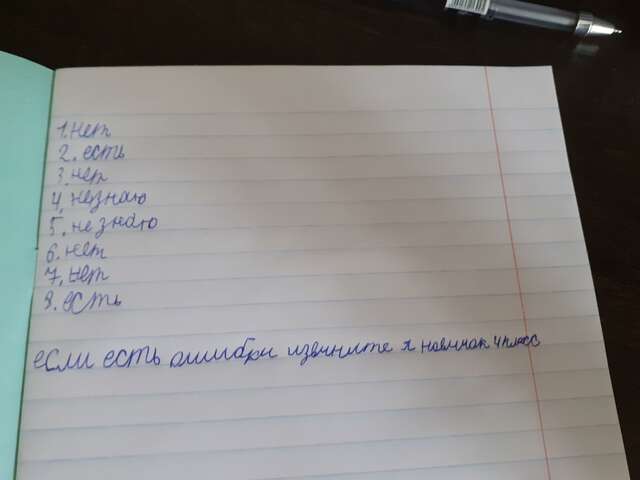 1. нет
2. есть
3. нет
4. незнаю
5. не знаю
6. нет
7. нет
8. есть
если есть ошибки извените я новичок 4 класс